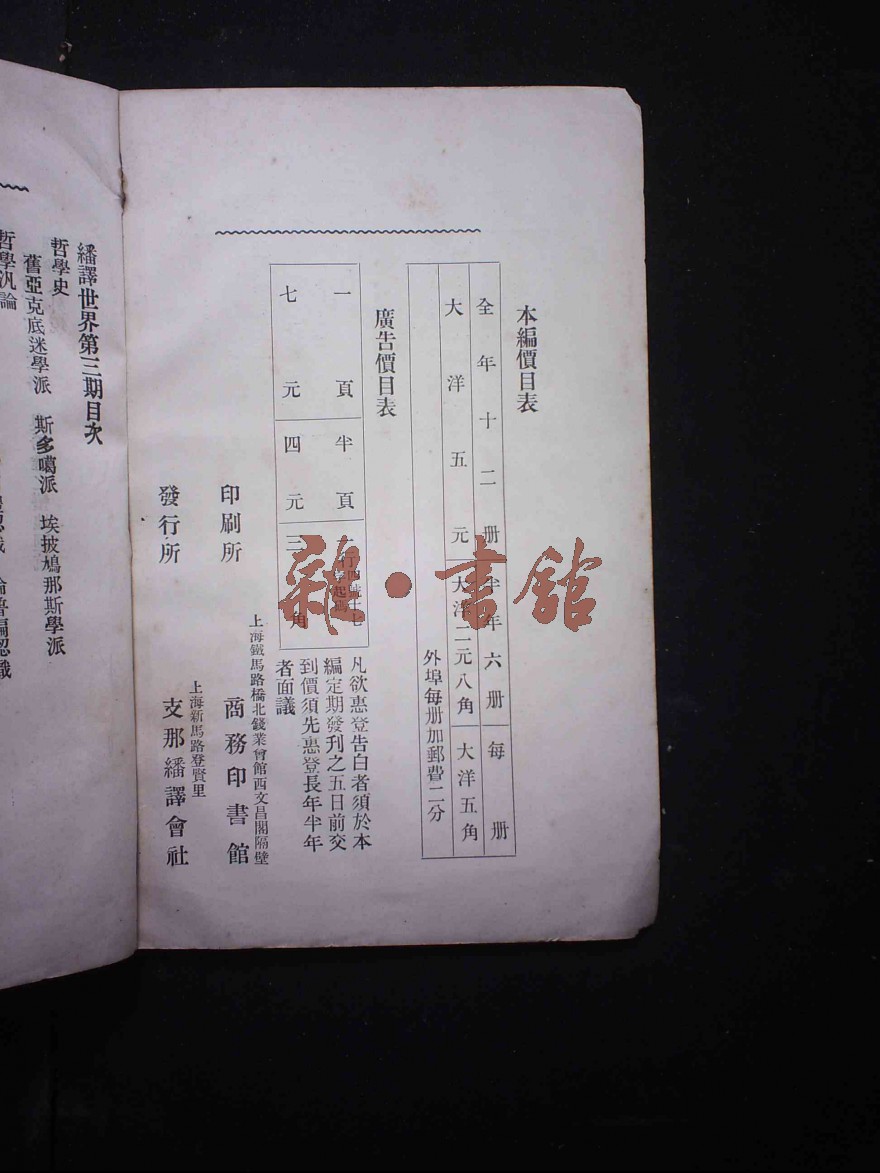 本編價目表
全年十二册 半年六册 每册
大洋五元 大洋二元八角 大洋五角
外埠每册加郵費二分
廣告價目表
一頁 半頁 一行四號十七字起碼
七元 四元 三角
凡欲惠登告白者須於本
編定期發刊之五日前交
到價須先惠登長年半年
者面議
上海鐵馬路橋北錢業會館西文昌閣隔壁
印刷所 商務印書館
上海新馬路登賢里
發行所 支那繙譯會社
繙譯世界第三期目次
哲學史
舊亞克底迷學派 斯多噶派 埃披鳩那斯學派
哲學汎論
論普編認識
雜·書館